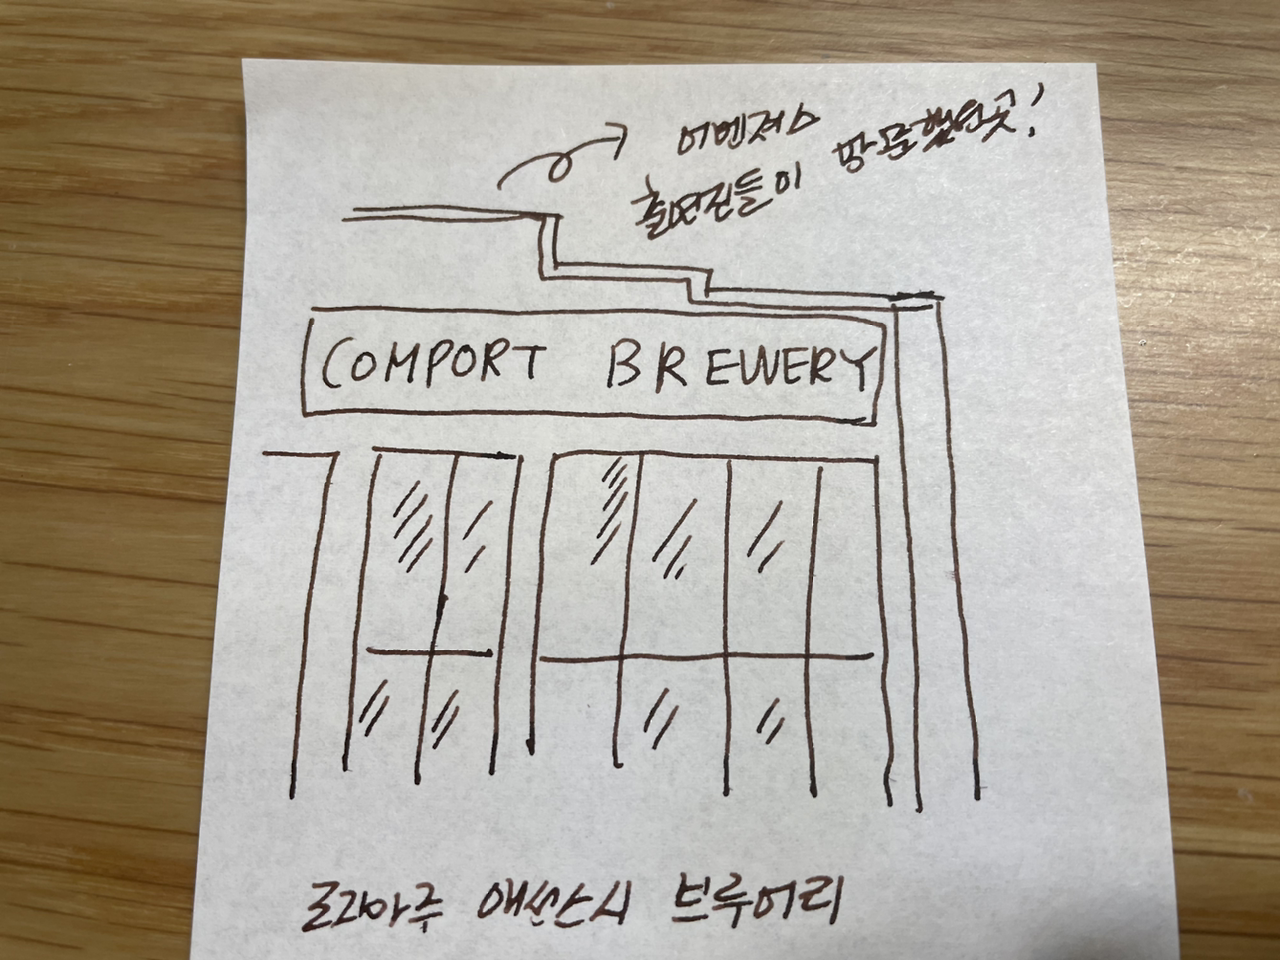 어벤져스
출연진들이 방문했던 곳!
COMPORT BREWERY
조지아주 애선스시 브루어리